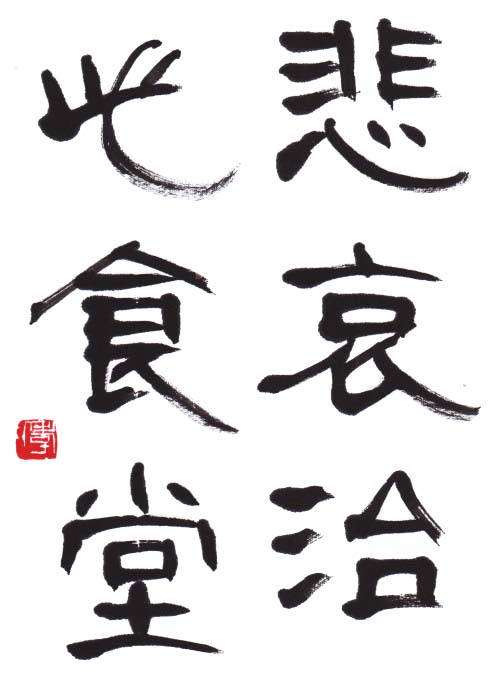 悲哀治
此食堂